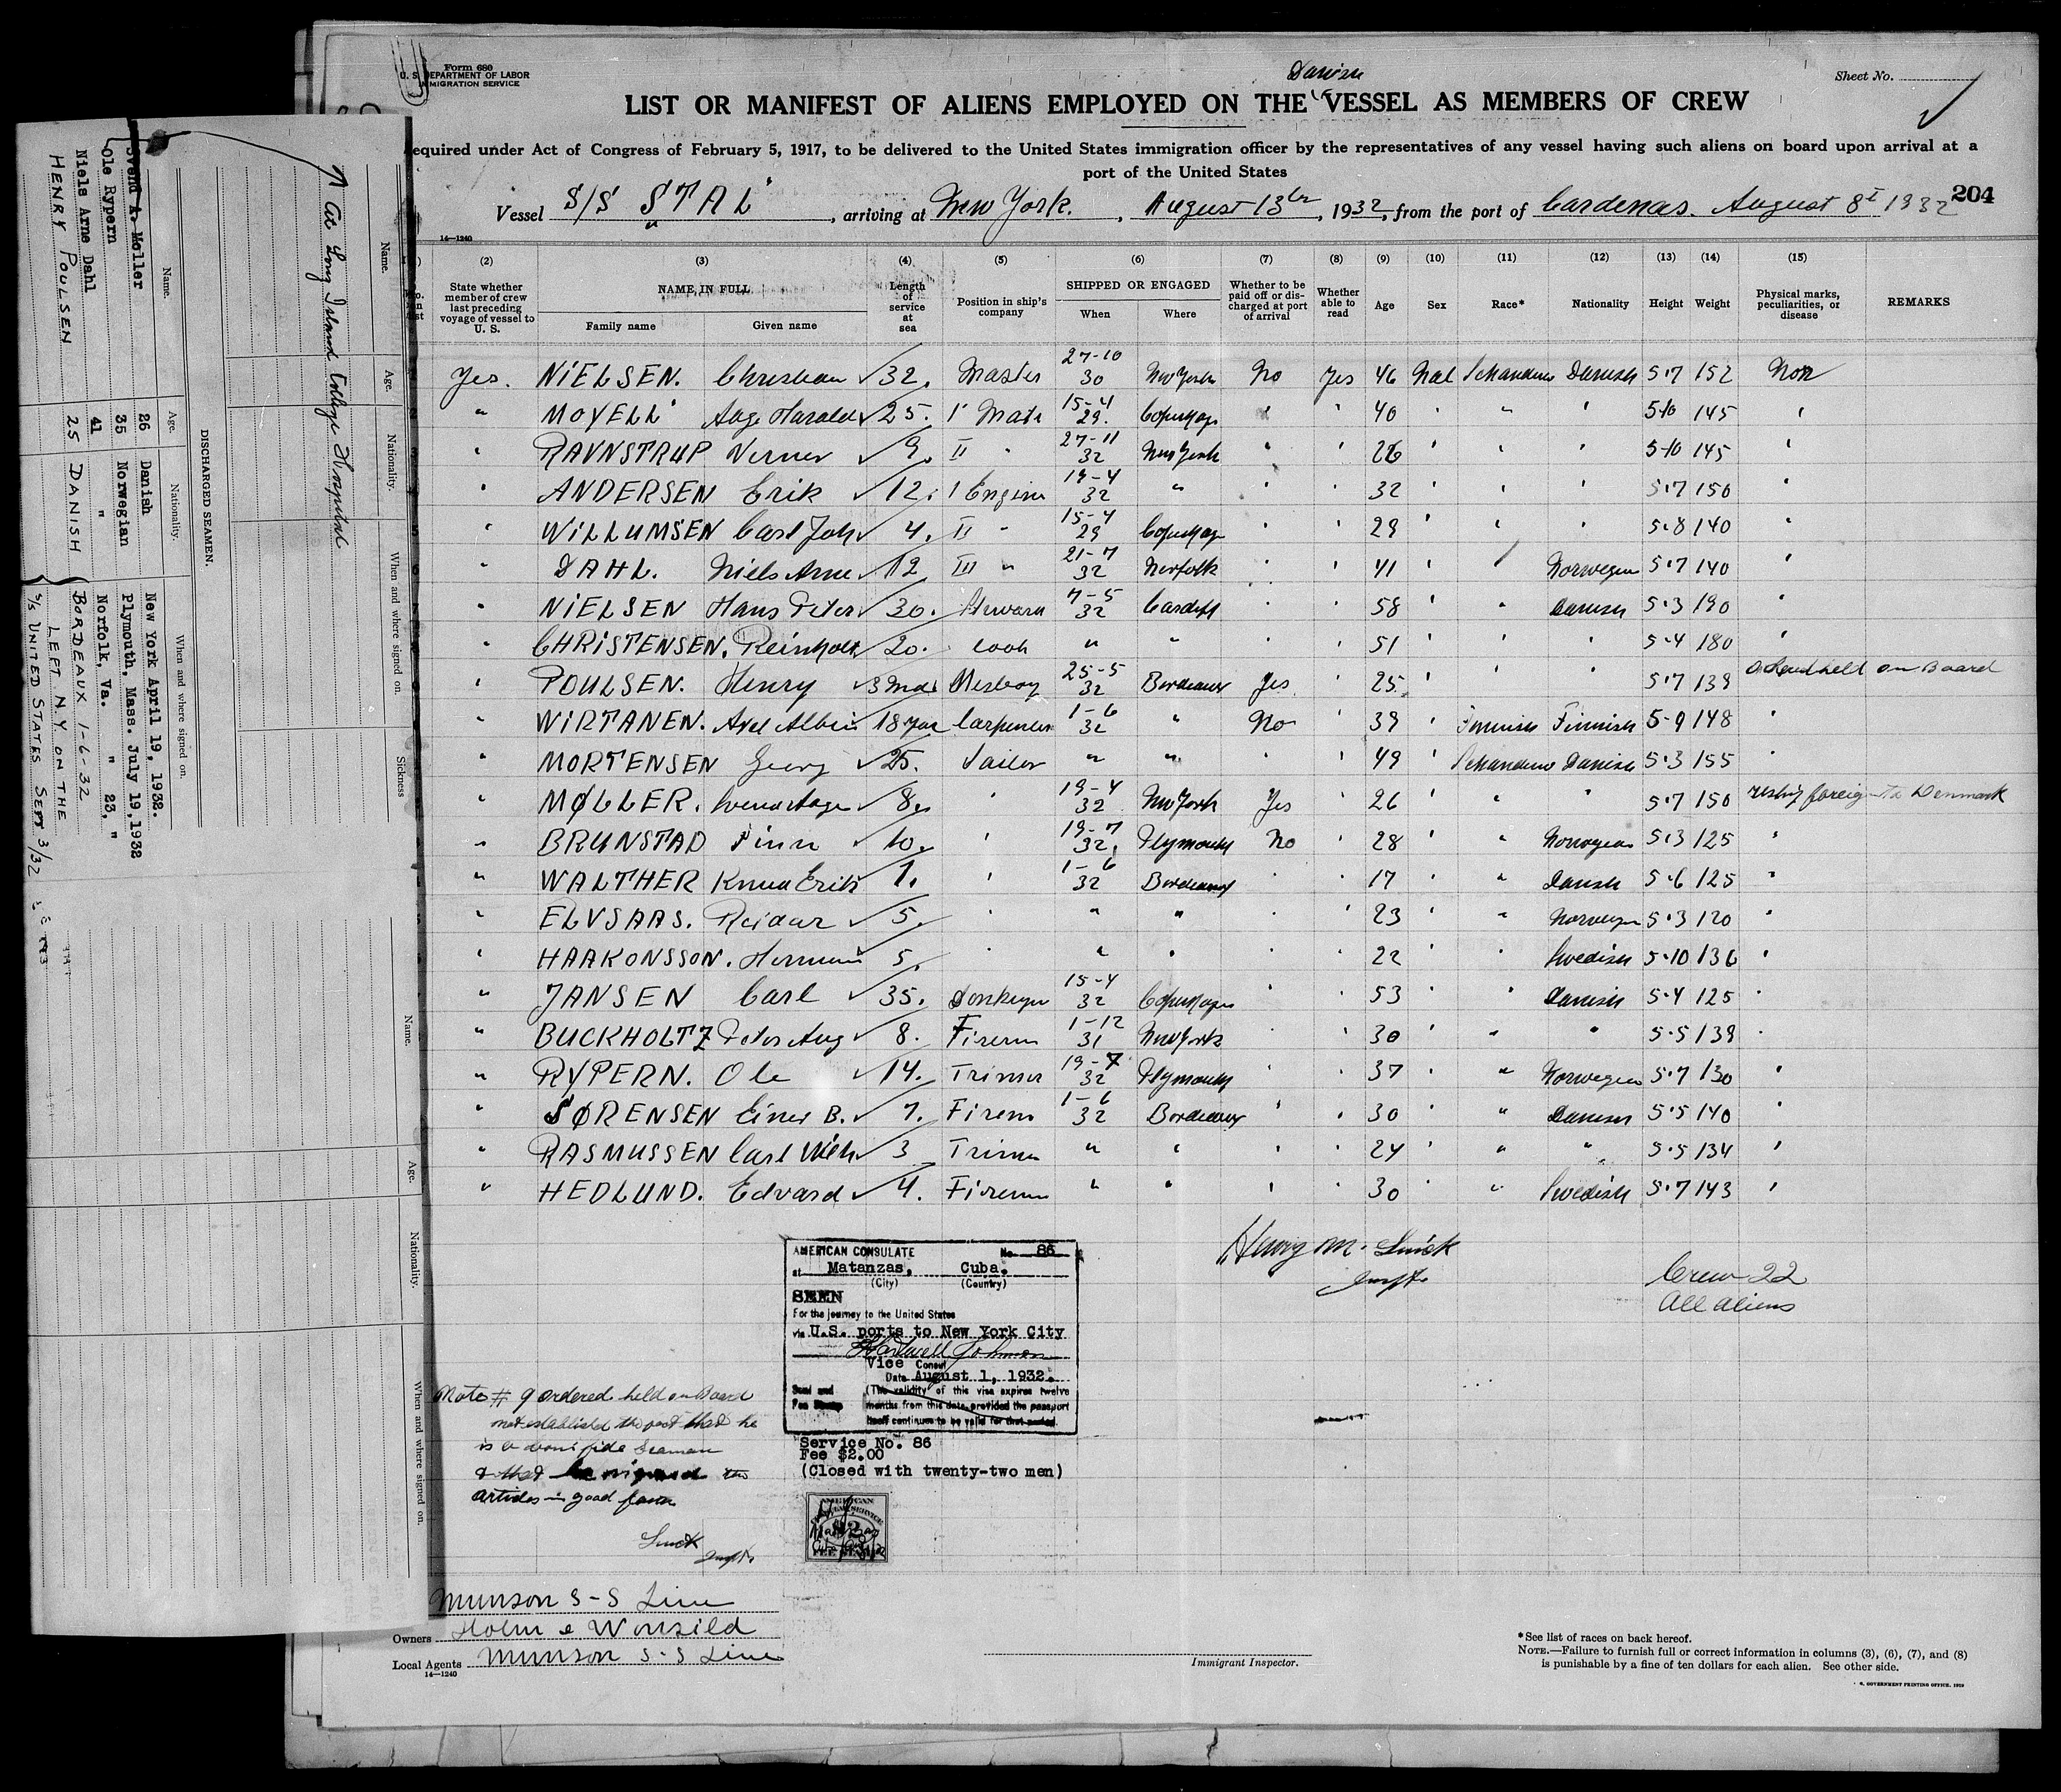 Form 680
U. S. DEPARTMENT OF LABOR
IMMIGRATION SERVICE
Sheet No.
Danish
LIST OR MANIFEST OF ALIENS EMPLOYED ON THE VESSEL AS MEMBERS OF CREW
equired under Act of Congress of February 5, 1917, to be delivered to the United States immigration officer by the representatives of any vessel having such aliens on board upon arrival at a
port of the United States
Vessel S/S "STAL", arriving at New York., August 13th, 1932, from the port of Cardenas. August 8th 1932 204
14—1240
(2) (3) (4) (5) (6) (7) (8) (9) (10) (11) (12) (13) (14) (15)
State whether member of crew last preceding voyage of vessel to U. S. NAME IN FULL Family name Given name Length of service at sea Position in ship's company SHIPPED OR ENGAGED When Where Whether to be paid off or discharged at port of arrival Whether able to read Age Sex Race* Nationality Height Weight Physical marks, peculiarities, or disease REMARKS
Yes. NIELSEN. Christian 32. Master 27-10 30 New York No Yes 46 Danish 5.7 152
" MOYELL Aage Harald 25. 1' Mate 15-4 29. Copenhagn 40 " ' 5-10 145 '
" RAVNSTRUP Verner 9. II " 27-11 32 New York " ' 26 ' ' ' 5-10 145 "
" ANDERSEN Erik 12. 1 Engine 19-4 32 " ' 32 ' ' ' 5.7 150 "
" WILLUMSEN Carl Joh 4. II " 15-4 29 Copenhagn ' ' 29 ' ' ' 5.8 140 "
" DAHL. Niels Arne 12 III " 21-7 32 Norfolk ' ' 41 ' ' Norwegian 5.7 140 "
" NIELSEN Hans Peter 30. Steward 7-5 32 Cardiff ' ' 58 ' " Danish 5.3 190 '
" CHRISTENSEN. Reinholt 20. cook " " ' ' 51 ' ' ' 5.4 180 '
" POULSEN. Henry 3 Mdr Mesboy 25-5 32 Bordeaux Yes ' 25 ' ' " 5.7 139 held on Board
" WIRTANEN. Axel Albin 18 year Carpenter 1-6 32 " No ' 39 ' Finnish Finnish 5-9 148 '
" MORTENSEN Georg 25. Sailor " " ' 49 ' Danish 5.3 155 '
" MØLLER. Svend Aage 8. ' 19-4 32 New York Yes ' 26 ' " " 5.7 150 reship foreign to Denmark
" BRUNSTAD Finn 10. ' 19-7 32. Plymouth No ' 28 ' " Norwegian 5.3 125 "
" WALTHER Knud Erik 1. ' 1-6 32 Bordeaux ' ' 17 ' " Danish 5.6 125 "
" ELVSAAS. Reidar 5. ' " " ' ' 23 ' " Norwegian 5.3 120 "
" HAAKONSSON. Herman 5. ' " " ' ' 22 ' ' Swedish 5.10 136 "
" JANSEN Carl 35. Donkeyn 15-4 32 Copenhagn ' ' 53 ' " Danish 5.4 125 '
" BUCKHOLTZ Peter Aug 8. Firem 1-12 31 New York ' ' 30 ' " " 5.5 139 '
" RYPERN. Ole 14. Trimer 19-7 32 Plymouth ' ' 37 ' " Norwegian 5.7 130 '
" SØRENSEN Einer B. 7. Firem 1-6 32 Bordeaux ' ' 30 ' " Danish 5.5 140 "
" RASMUSSEN Carl Wilh 3 Trimer " " ' ' 24 ' " " 5.5 134 '
" HEDLUND. Edvard 4. Firem " " ' ' 30 ' " Swedish 5.7 143 '
Henry M.
Crew 22
All aliens
AMERICAN CONSULATE No. 86
at Matanzas, Cuba.
(City) (Country)
SEEN
For the journey to the United States
via U.S. ports to New York City
Hartwell Johnson
Vice Consul
Date August 1, 1932.
Seal and Fee Stamp
(The validity of this visa expires twelve
months from this date, provided the passport
itself continues to be valid for that period.
Service No. 86
Fee $2.00
(Closed with twenty-two men)
Note # 9 ordered held on Board
not established the fact that he
is a bona fide seaman
& that he signed the
articles in good faith
Munson S-S Line
Owners Holm & Wonsild
Local Agents Munson S-S Line
14—1240
Immigrant Inspector.
*See list of races on back hereof.
NOTE.—Failure to furnish full or correct information in columns (3), (6), (7), and (8)
is punishable by a fine of ten dollars for each alien. See other side.
U. S. GOVERNMENT PRINTING OFFICE. 1929
Name. Age. Nationality. When and where signed on. Sickness
↑ At Long Island College Hospital
DISCHARGED SEAMEN.
Name. Age. Nationality. When and where signed on.
Svend A. Moller 26 Danish New York April 19, 1932.
Ole Rypern 35 Norwegian Plymouth, Mass. July 19, 1932
Niels Arne Dahl 41 " Norfolk, Va. " 23, "
HENRY POULSEN 25 DANISH BORDEAUX 1-6-32
LEFT N.Y. ON THE
S/S UNITED STATES SEPT 3/32
Name. Age. Nationality. When and where signed on.